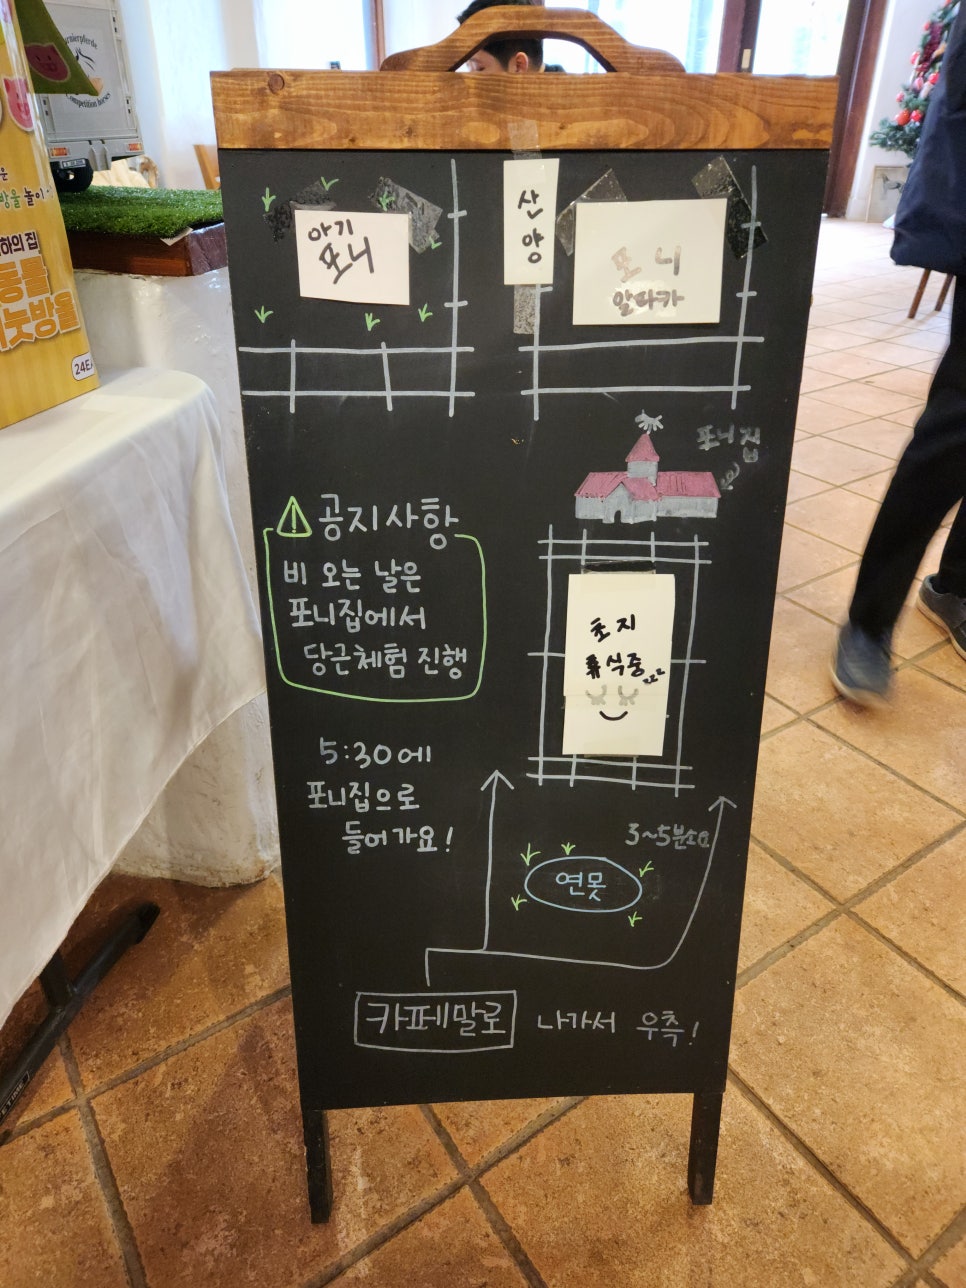 아기
포니
산
양
포니
알파카
포니집
공지사항
비 오는 날은
포니집에서
당근체험 진행
초지
휴식중
zzz
5:30에
포니집으로
들어가요!
3~5분소요
연못
카페말로 나가서 우측!
하의 집
동물
24E
Competition horses